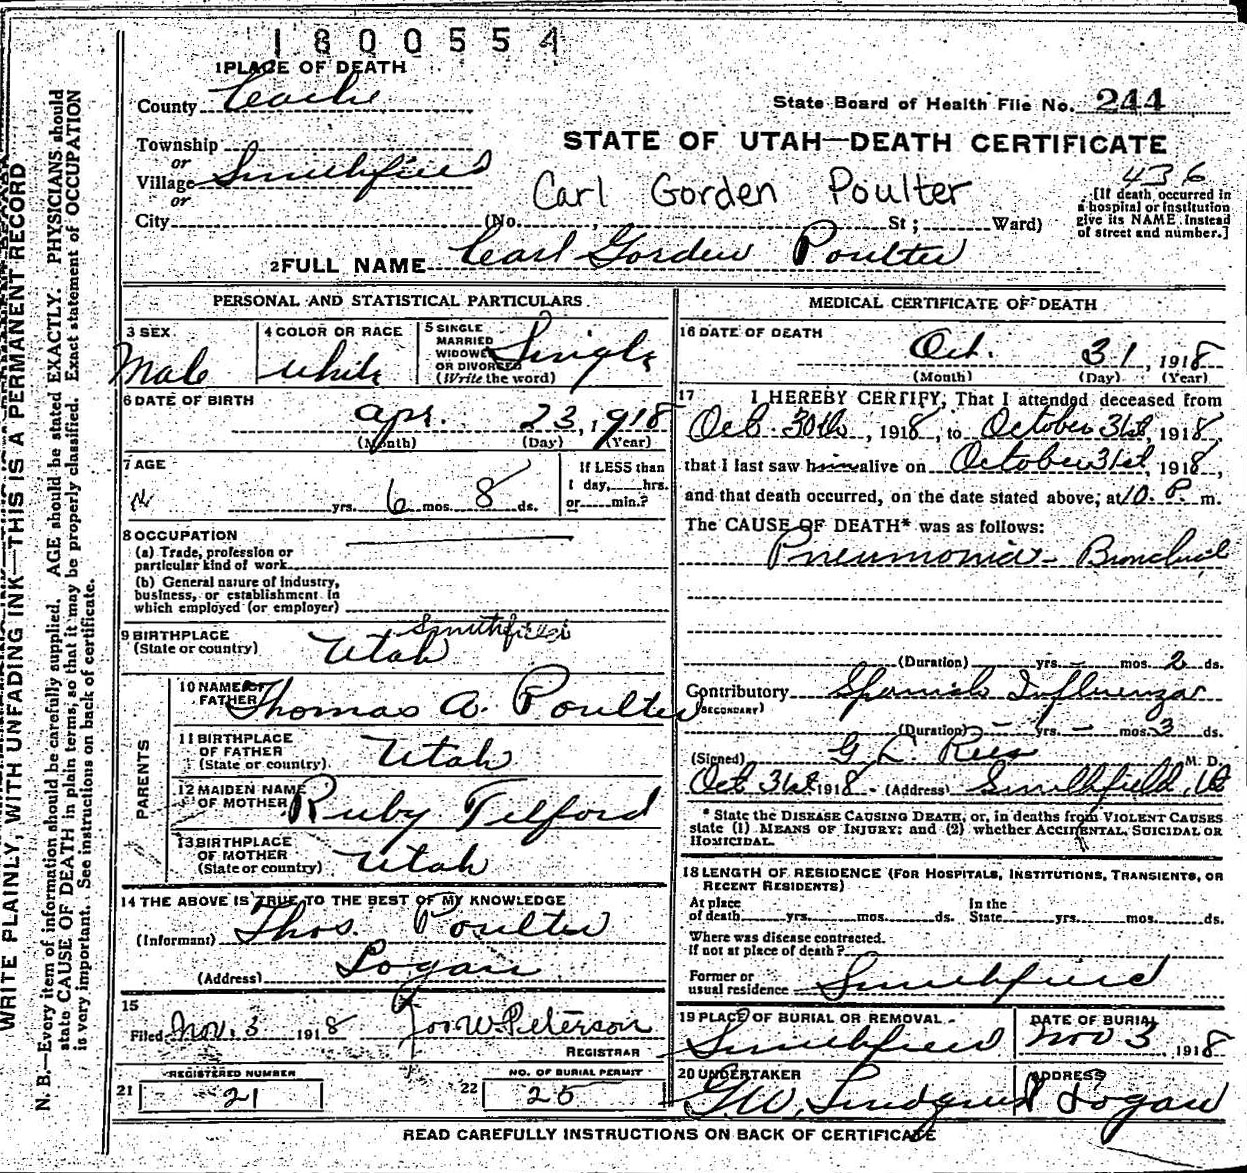 1800554
1 PLACE OF DEATH
County Cache
State Board of Health File No. 244
Township
or
Village Smithfield
or
City (No. St; Ward)
STATE OF UTAH—DEATH CERTIFICATE
436
Carl Gorden Poulter
[If death occurred in
a hospital or institution
give its NAME instead
of street and number.]
2 FULL NAME Carl Gorden Poulter
PERSONAL AND STATISTICAL PARTICULARS
3 SEX
Male
4 COLOR OR RACE
White
5 SINGLE
MARRIED
WIDOWED
OR DIVORCED
(Write the word)
Single
6 DATE OF BIRTH
Apr. 23, 1918
(Month) (Day) (Year)
7 AGE
yrs. 6 mos. 8 ds.
If LESS than
1 day, hrs.
or min.?
8 OCCUPATION
(a) Trade, profession or
particular kind of work
(b) General nature of Industry,
business, or establishment in
which employed (or employer)
9 BIRTHPLACE
(State or country) Utah Smithfield
PARENTS
10 NAME OF
FATHER Thomas A. Poulter
11 BIRTHPLACE
OF FATHER
(State or country) Utah
12 MAIDEN NAME
OF MOTHER Ruby Telford
13 BIRTHPLACE
OF MOTHER
(State or country) Utah
14 THE ABOVE IS TRUE TO THE BEST OF MY KNOWLEDGE
(Informant) Thos. Poulter
(Address) Logan
15
Filed Nov. 3 1918 Jos. W. Peterson
REGISTRAR
REGISTERED NUMBER
21 21
NO. OF BURIAL PERMIT
22 25
MEDICAL CERTIFICATE OF DEATH
16 DATE OF DEATH
Oct. 31, 1918
(Month) (Day) (Year)
17 I HEREBY CERTIFY, That I attended deceased from
Oct. 30th, 1918, to October 31st, 1918,
that I last saw him alive on October 31st, 1918,
and that death occurred, on the date stated above, at 10. P. m.
The CAUSE OF DEATH* was as follows:
Pneumonia - Bronchial
(Duration) yrs. - mos. 2 ds.
Contributory Spanish Influenza
(SECONDARY)
(Duration) - yrs. - mos. 3 ds.
(Signed) G. L. Rees M. D.
Oct 31st 1918 - (Address) Smithfield, Ut
* State the DISEASE CAUSING DEATH, or, in deaths from VIOLENT CAUSES
state (1) MEANS OF INJURY; and (2) whether ACCIDENTAL, SUICIDAL OR
HOMICIDAL.
18 LENGTH OF RESIDENCE (FOR HOSPITALS, INSTITUTIONS, TRANSIENTS, OR
RECENT RESIDENTS)
At place
of death yrs. mos. ds.
In the
State yrs. mos. ds.
Where was disease contracted.
If not at place of death?
Former or
usual residence Smithfield
19 PLACE OF BURIAL OR REMOVAL
Smithfield
DATE OF BURIAL
Nov 3, 1918
20 UNDERTAKER
G. W. Lindquist
ADDRESS
Logan
READ CAREFULLY INSTRUCTIONS ON BACK OF CERTIFICATE
WRITE PLAINLY, WITH UNFADING INK—THIS IS A PERMANENT RECORD
N. B.—Every item of information should be carefully supplied. AGE should be stated EXACTLY. PHYSICIANS should
state CAUSE OF DEATH in plain terms, so that it may be properly classified. Exact statement of OCCUPATION
is very important. See instructions on back of certificate.